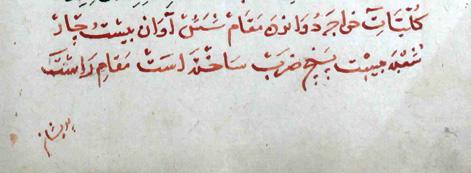 کلیات خواجه دوازده مقام شش آوازه بیست چهار
شعبه بیست پنج ضرب ساختن است مقام راست